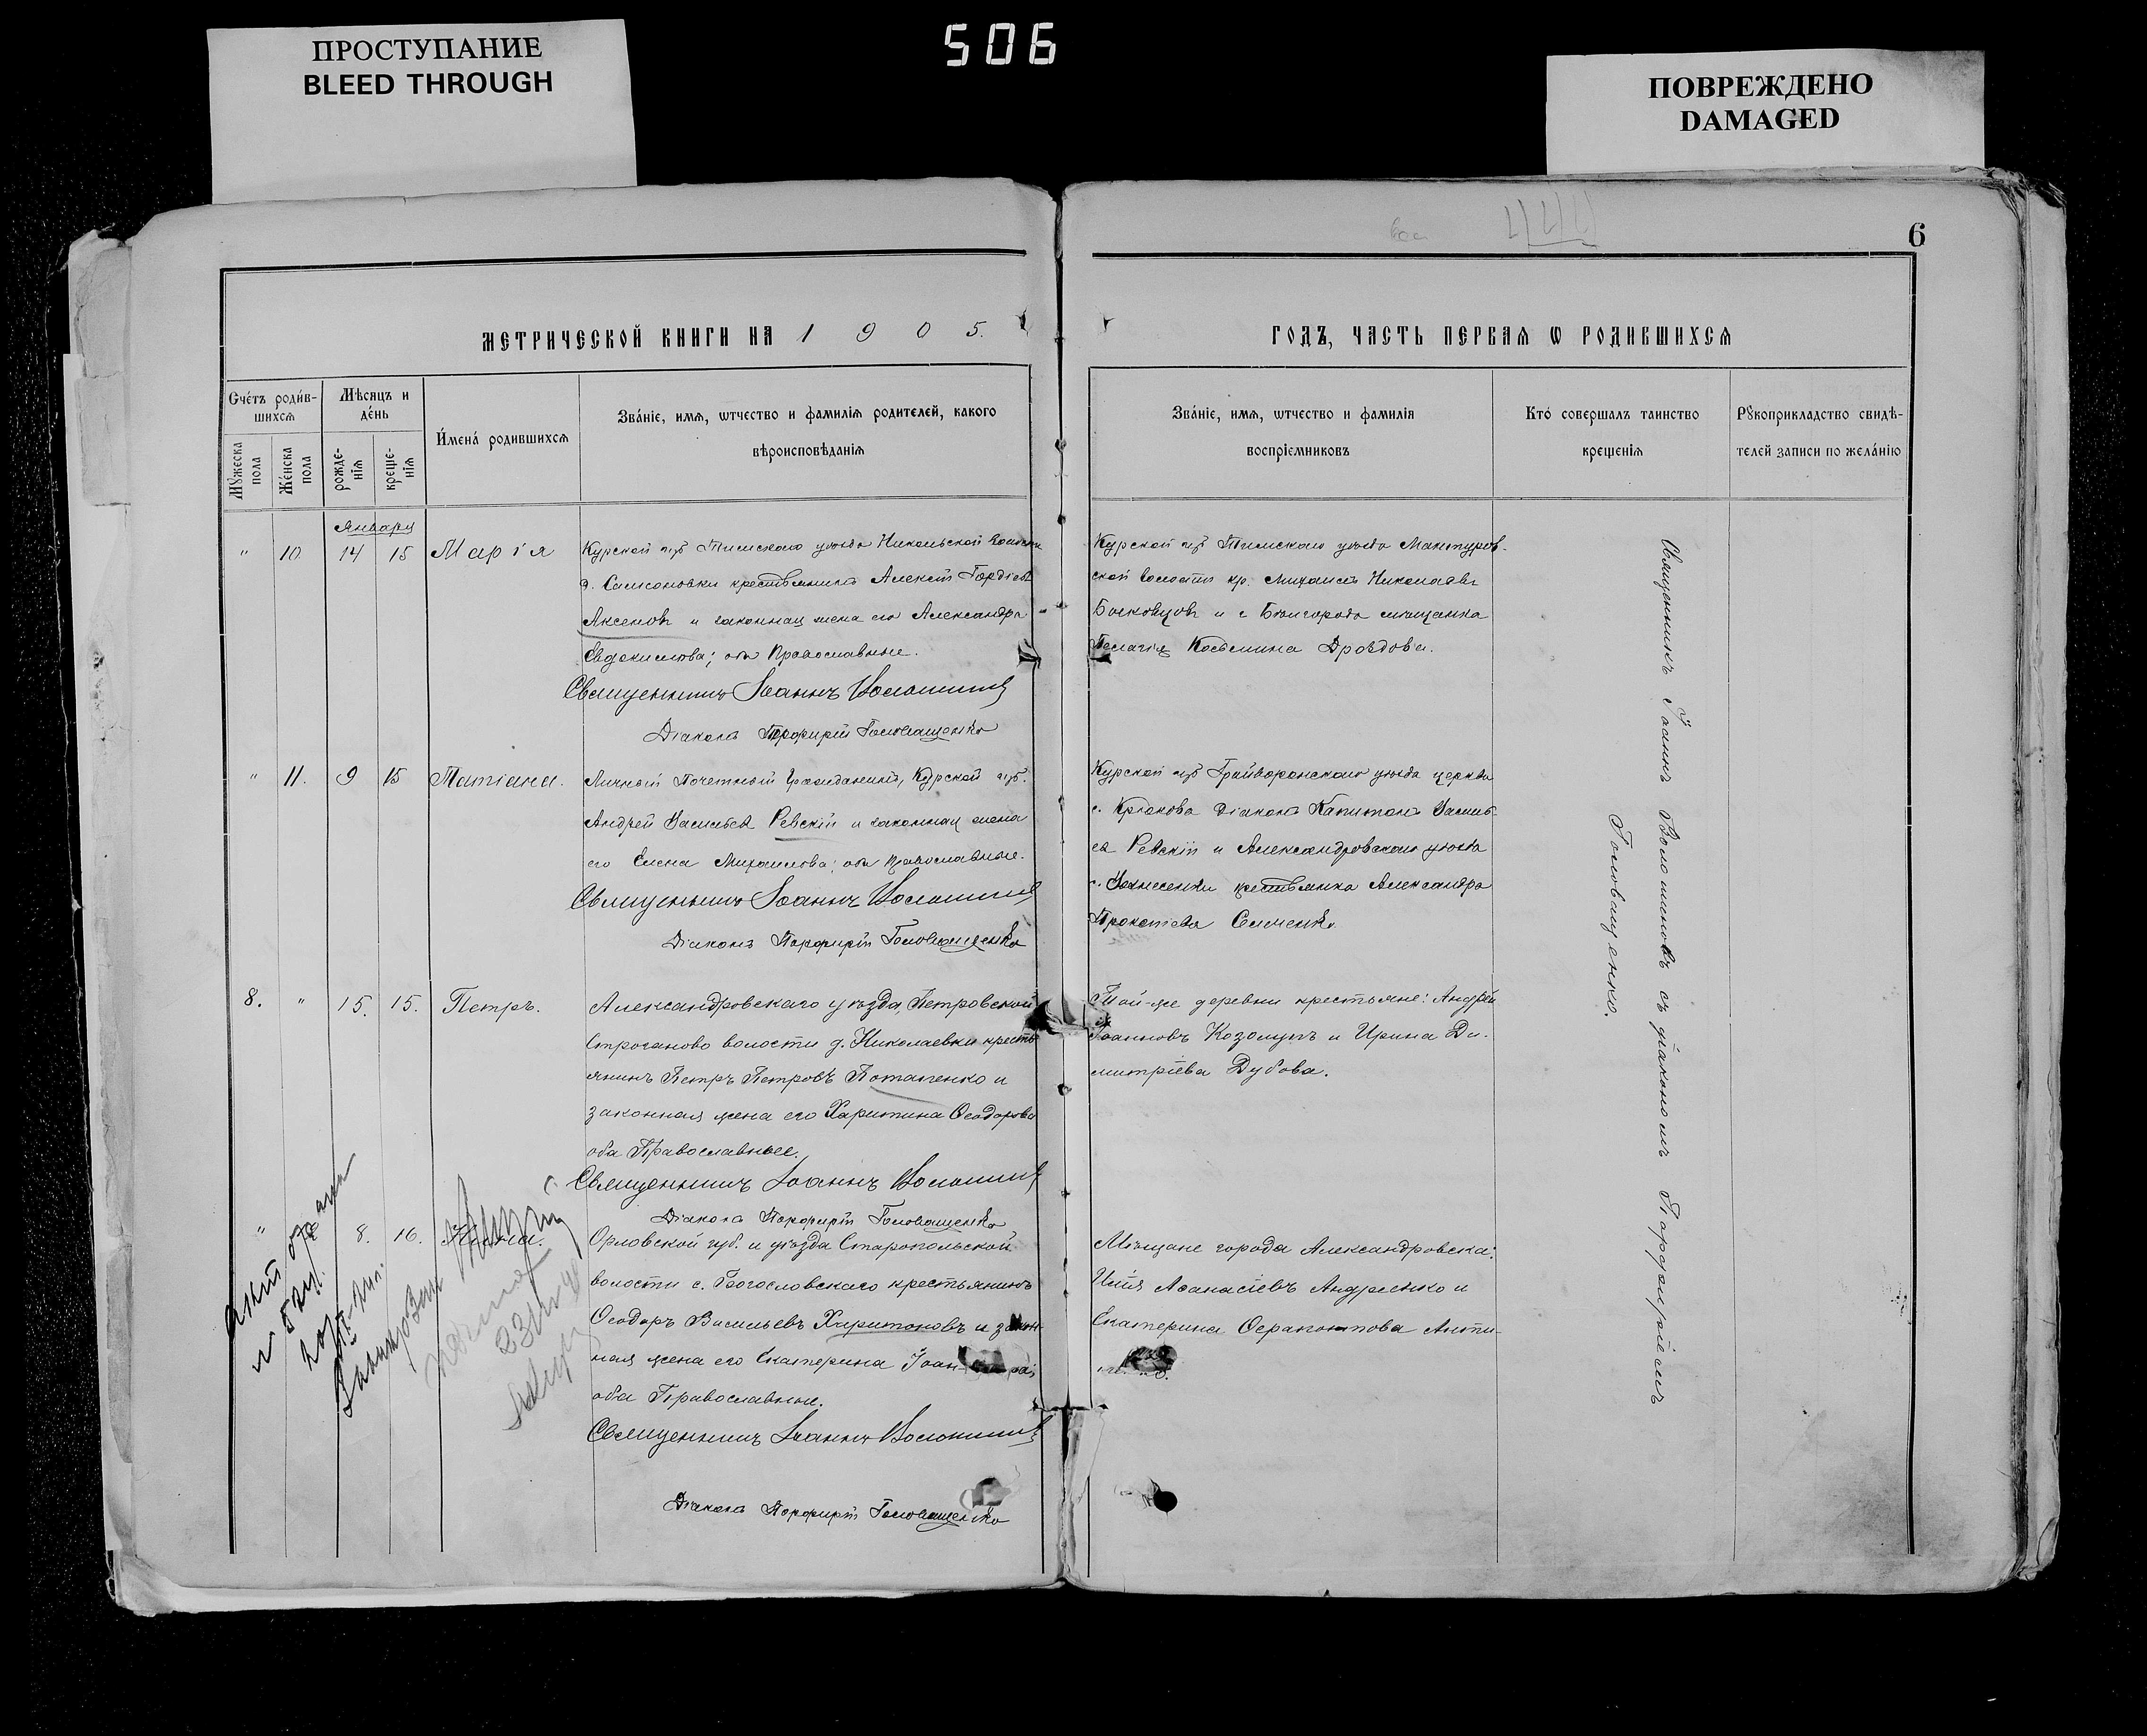 ПРОСТУПАНИЕ
BLEED THROUGH
506
ПОВРЕЖДЕНО
DAMAGED
6
МЕТРИЧЕСКОЙ КНИГИ НА 1905.
ГОДЪ, ЧАСТЬ ПЕРВАЯ Ѡ РОДИВШИХСѦ
Счетъ родившихсѧ
Мужеска пола
Женска пола
Мѣсяцъ и день
рожденіѧ
крещеніѧ
Имена родившихсѧ
Званіе, имѧ, ѡтчество и фамиліѧ родителей, какого
вѣроисповѣданіѧ
Званіе, имѧ, ѡтчество и фамиліѧ
воспріемниковъ
Кто совершалъ таинство
крещеніѧ
Рукоприкладство свидѣ-
телей записи по желанію
Январь
" 10 14 15 Марія
Курской губ Тимскаго уѣзда Никольской волости
д. Самсоновки крестьянинъ Алексѣй Гордіевъ
Аксеновъ и законная жена его Александра
Евдокимова; оба Православные.
Священникъ Іоаннъ Волошиновъ
Діаконъ Порфирій Головащенко
Курской губ Тимскаго уѣзда Мантуров-
ской волости кр. Михаилъ Николаевъ
и г. Бѣлгорода мѣщанка
Пелагія Косьмина Дроздова.
" 11. 9 15 Татіана.
Личный Почетный Гражданинъ, Курской губ.
Андрей Васильевъ Ревскій и законная жена
его Елена Михаилова; оба православные.
Священникъ Іоаннъ Волошиновъ
Діаконъ Порфирій Головащенко
Курской губ Грайворонскаго уѣзда церкви
с. Крюкова Діаконъ Капитонъ Василь-
евъ Ревскій и Александровскаго уѣзда
с. Вознесенки крестьянка Александра
Прокопіева Семченко.
8. " 15. 15. Петръ.
Александровскаго уѣзда, Петровской
Строганово волости д. Николаевки кресть-
янинъ Петръ Петровъ Потапенко и
законная жена его Харитина Ѳеодорова
оба Православные.
Священникъ Іоаннъ Волошиновъ
Діаконъ Порфирій Головащенко
Той-же деревни крестьяне: Андрей
Іоанновъ Козолупъ и Ирина Ди-
митріева Дубова.
" 8. 16.
Орловской губ. и уѣзда Старопольской
волости с. Богословскаго крестьянинъ
Ѳеодоръ Васильевъ Харитоновъ и закон-
ная жена его Екатерина Іоан-
оба Православные.
Священникъ Іоаннъ Волошиновъ
Діаконъ Порфирій Головащенко
Мѣщане города Александровска:
Илія Аѳанасіевъ Андреенко и
Екатерина Ѳерапонтова Анти-
Священникъ Іоаннъ Волошиновъ съ діакономъ Порфиріемъ
Головащенко.